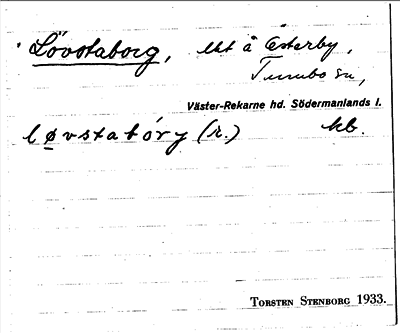 Lövstaborg, lht å Österby,
Tumbo sn,
Väster-Rekarne hd. Södermanlands l.
løvstabóry (r.) kb.
TORSTEN STENBORG 1933.